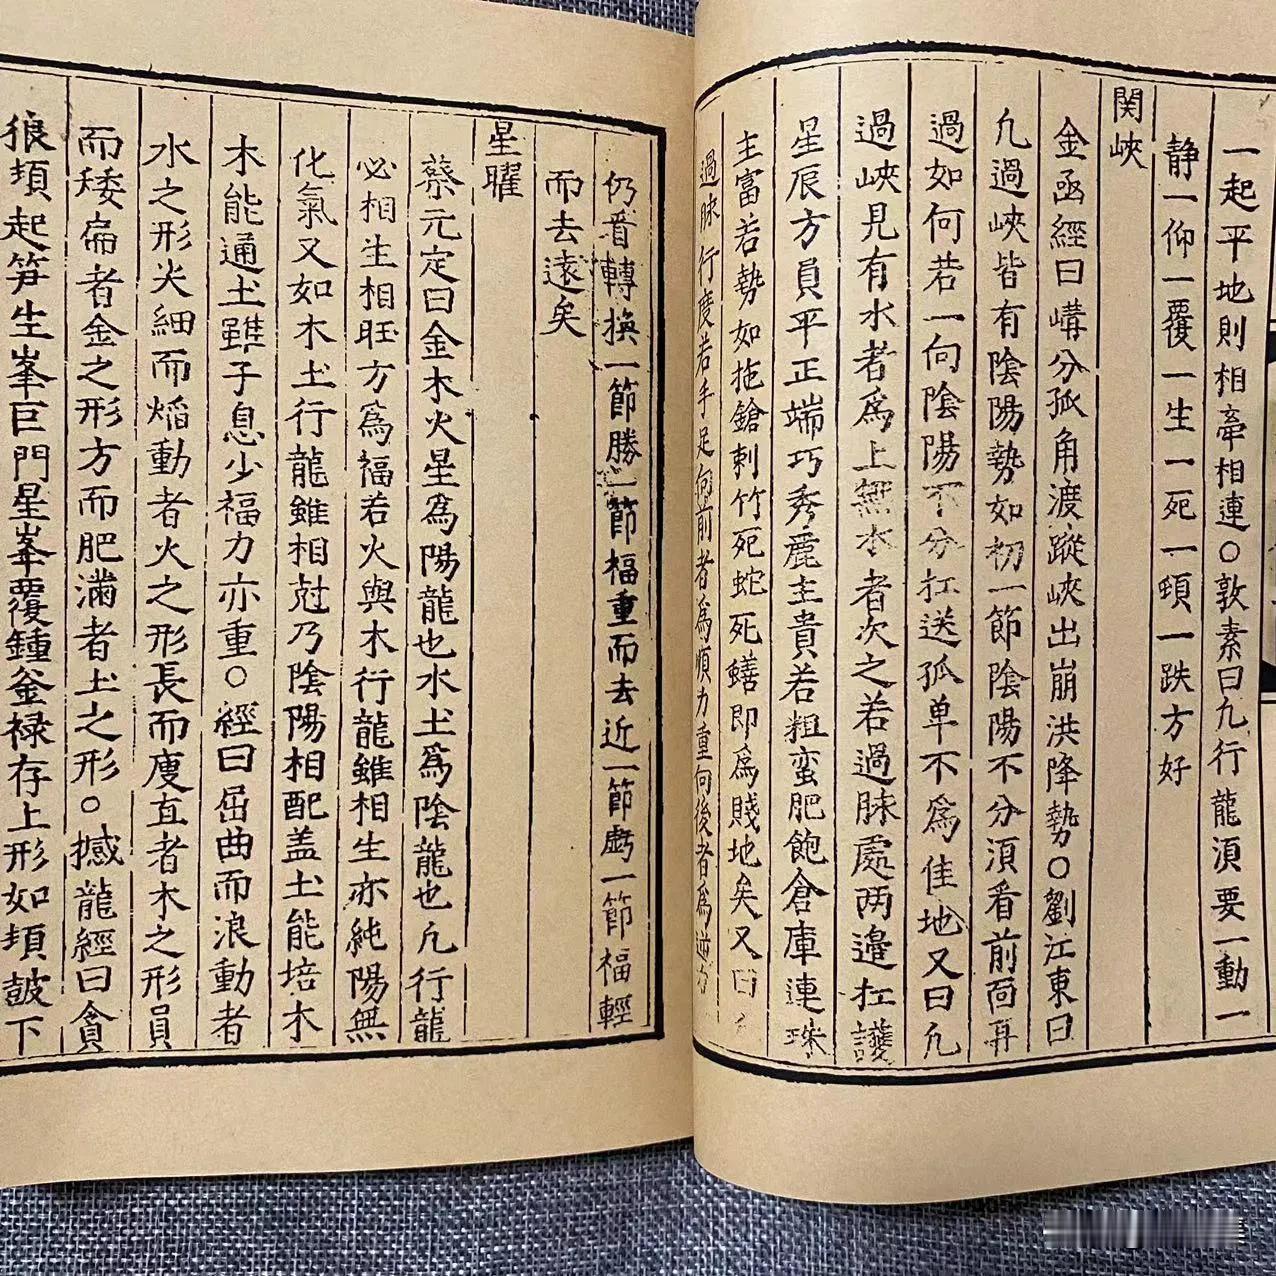 一起平地則相牽相連〇敦素曰九行龍湏要一動一
静一仰一覆一生一死一頓一跌方好
関峽
金函經曰嶹分孤角渡蹤峽出崩洪降勢〇劉江東曰
凢過峽皆有陰陽勢如初一節陰陽不分湏看前面再
過如何若一向陰陽不分扛送孤单不為佳地又曰凢
過峽見有水者為上無水者次之若過脉處两邉扛護
星辰方員平正端巧秀麗主貴若粗蛮肥飽倉庫連珠
主富若勢如拖鎗刺竹死蛇死鱔即為賤地矣又曰
過脉行度若手足向前者為順力重向後者為逆力
仍看轉換一節勝一節福重而去近一節虧一節福輕
而去遠矣
星曜
蔡元定曰金木火星為陽龍也水土為陰龍也凢行龍
必相生相旺方為福若火與木行龍雖相生亦純陽無
化氣又如木土行龍雖相尅乃陰陽相配盖土能培木
木能通土雖子息少福力亦重〇經曰屈曲而浪動者
水之形尖細而熖動者火之形長而廋直者木之形員
而矮扁者金之形方而肥滿者土之形〇撼龍經曰貪
狼頓起笋生峯巨門星峯覆鍾釜禄存上形如頓皷下